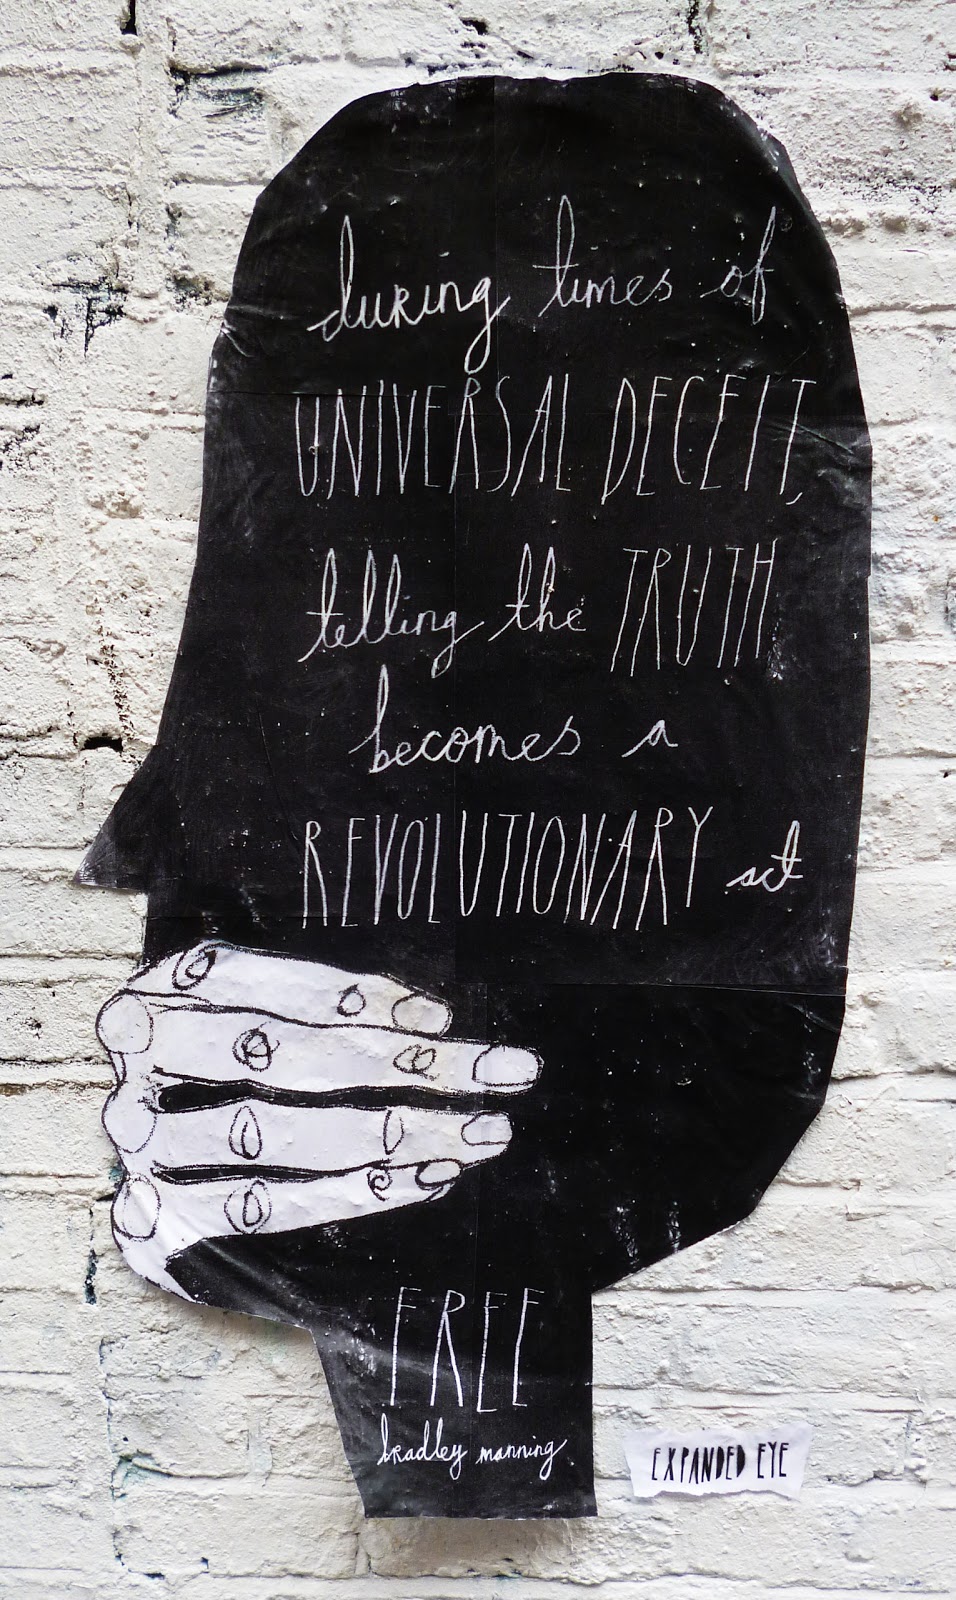 during times of
UNIVERSAL DECEIT,
telling the TRUTH
becomes a
REVOLUTIONARY act
FREE
bradley manning
EXPANDED EYE